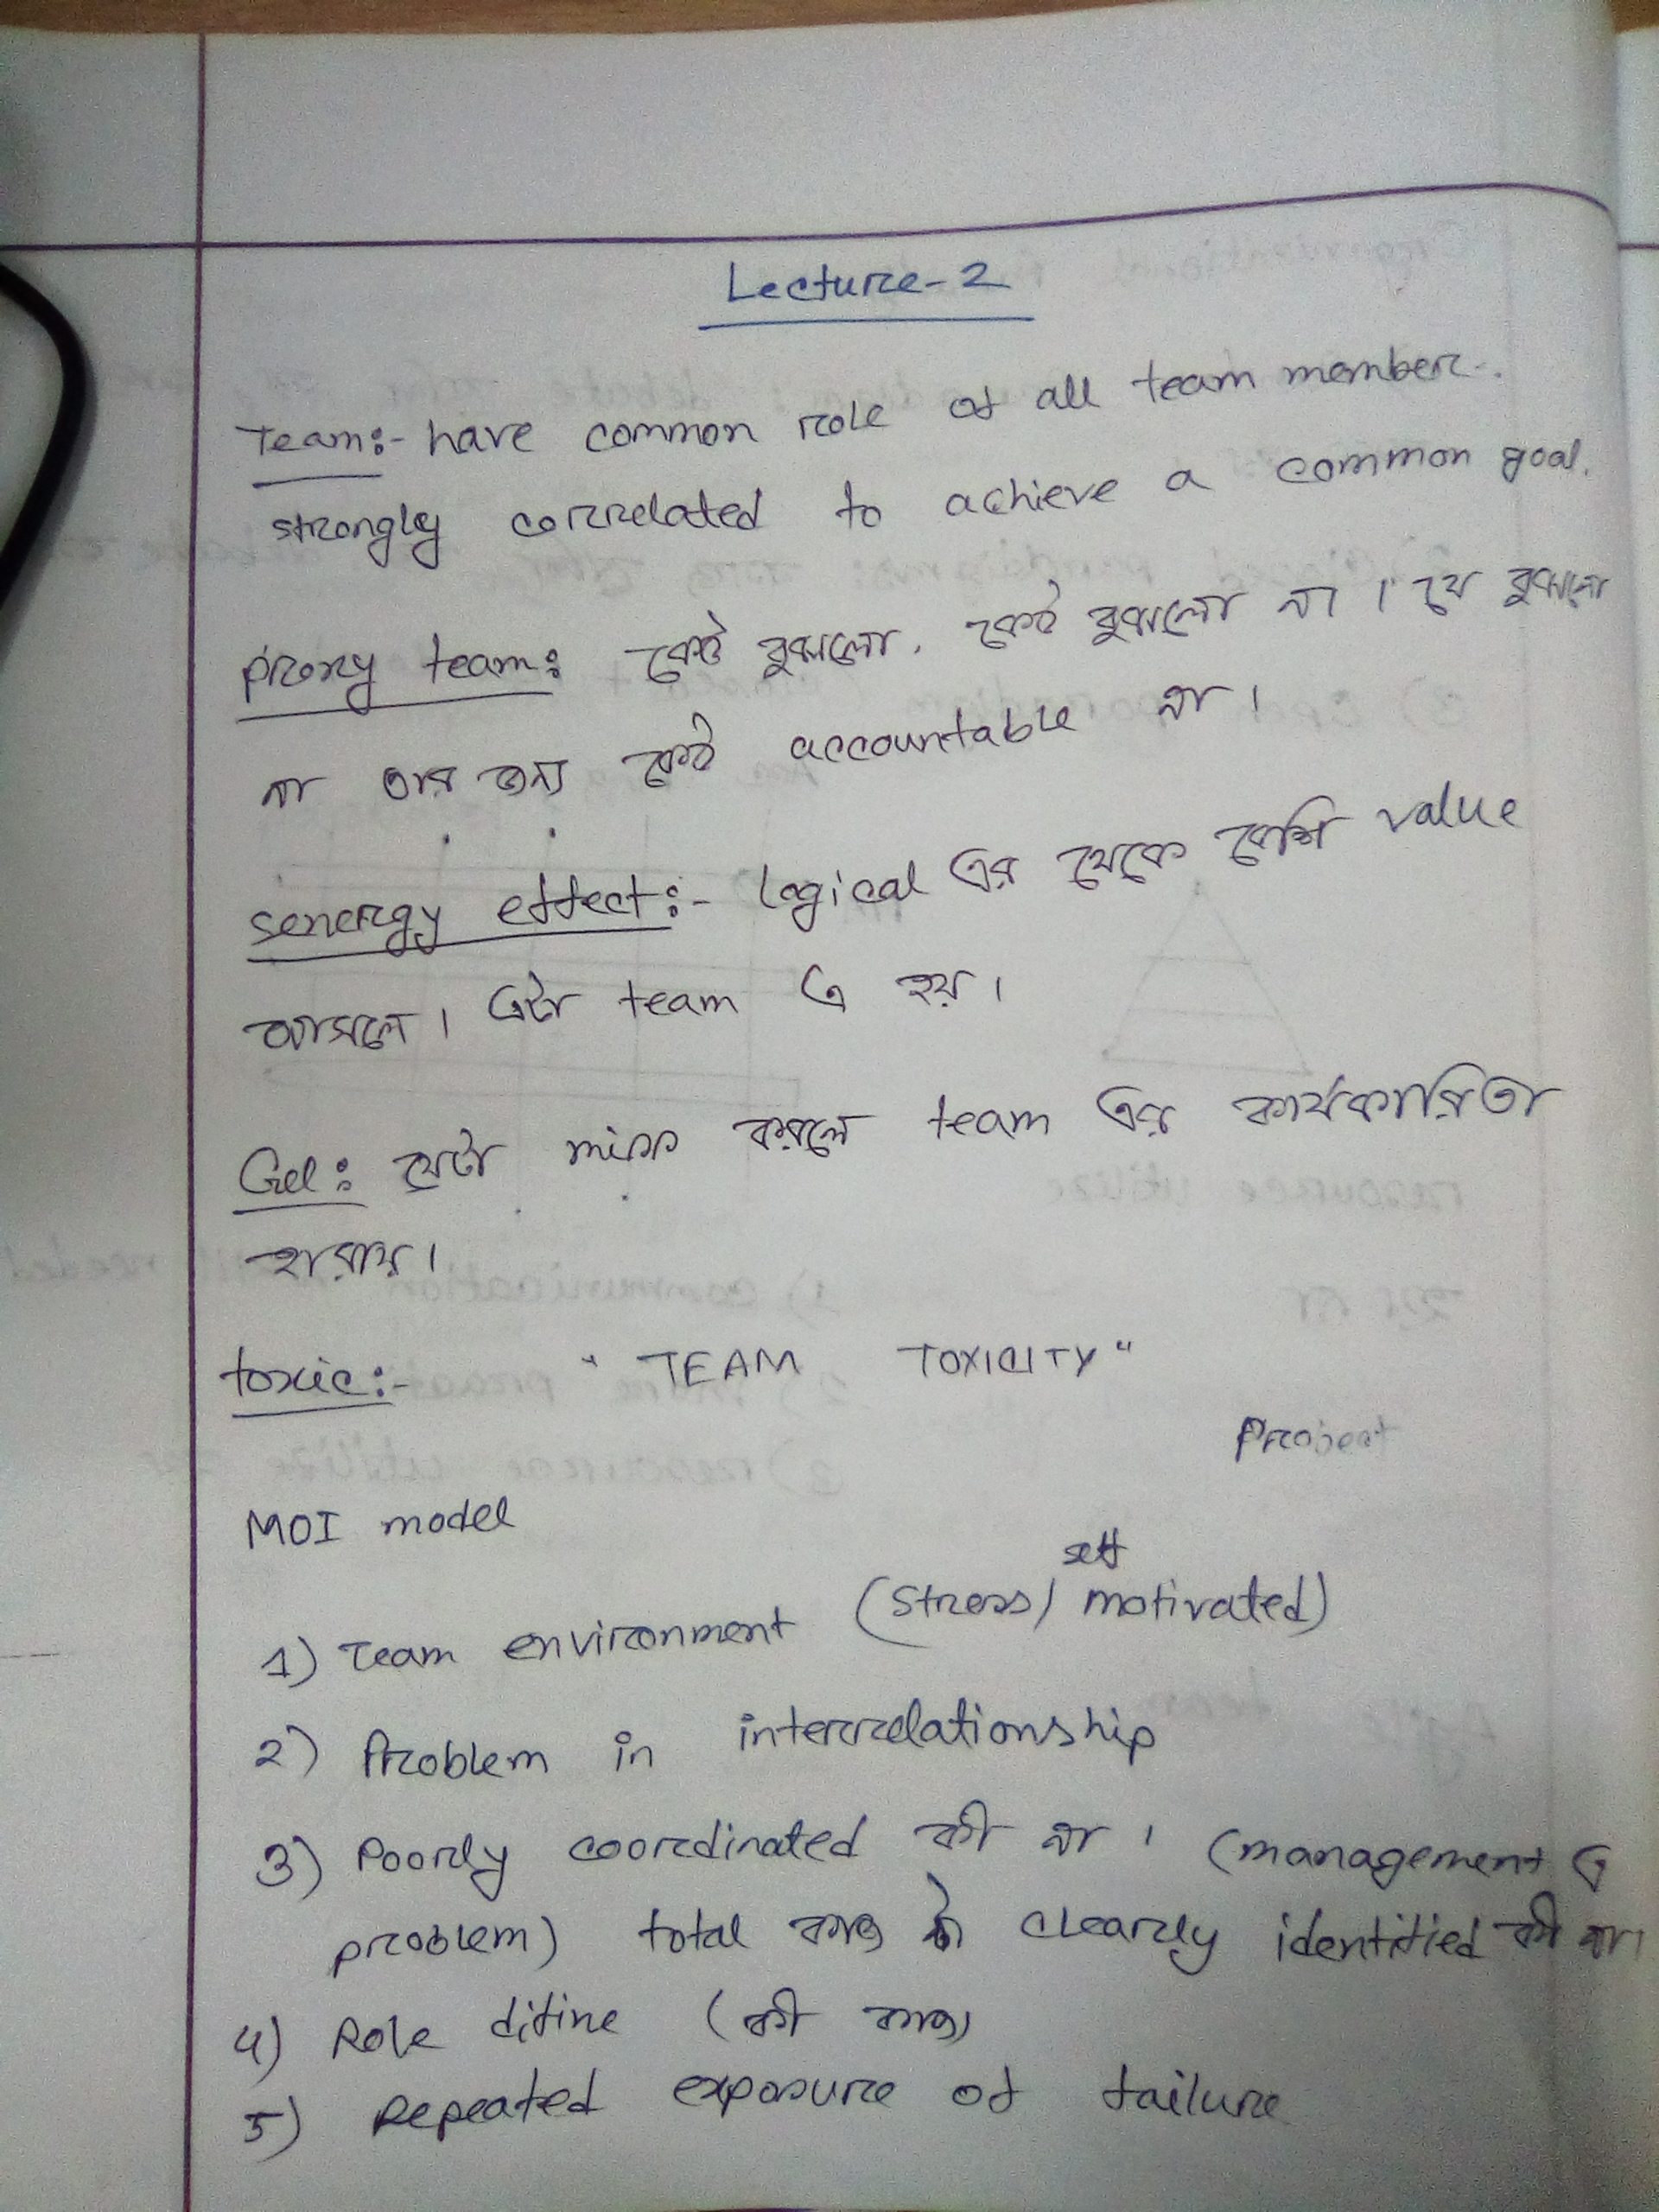 Lecture-2
Team:- have common role of all team member.
strongly correlated to achieve a common goal.
proxy team: কেউ বুঝলো, কেউ বুঝলো না । যে বুঝলো
না তার জন্য কেউ accountable না ।
senergy effect:- logical এর থেকে বেশি value
আসলে । এটা team এ হয় ।
Gel: যেটা miss করলে team এর কার্যকারিতা
হারায় ।
toxic:- "TEAM TOXICITY"
Project
MOI model
self
1) Team environment (stress/ motivated)
2) Problem in interrelationship
3) Poorly coordinated কী না । (management এ
problem) total কাজ টা clearly identified কী না ।
4) Role difine (কী কাজ)
5) Repeated exposure of failure